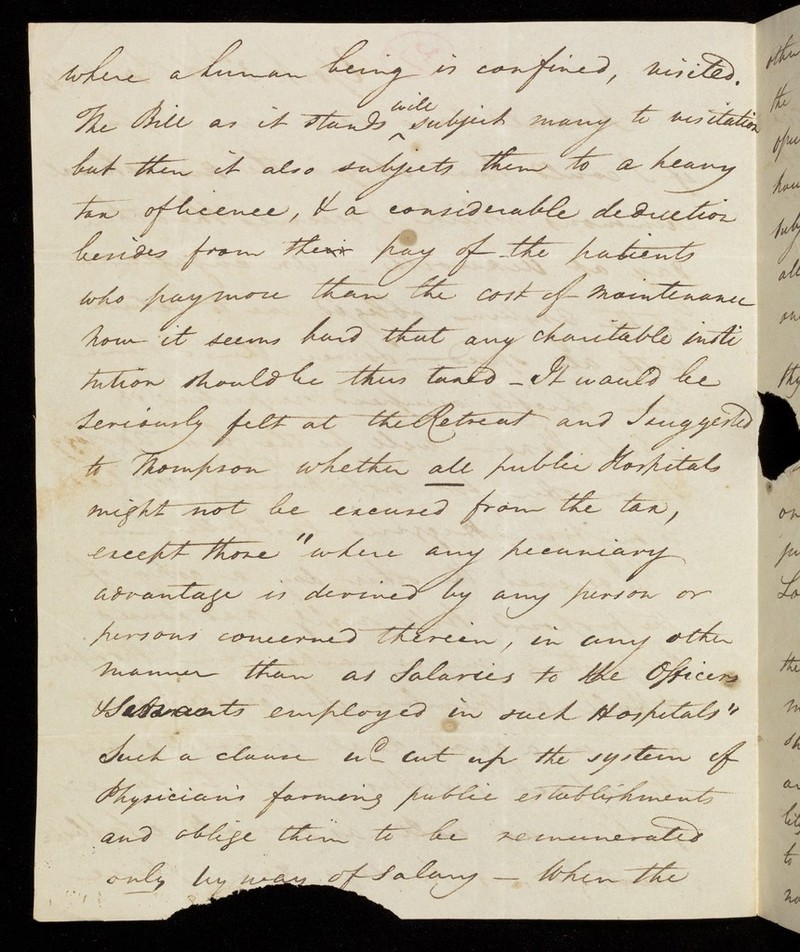 where a human being is confined, visited.
The Bill as it stands will subject many to visitation
but then it also subjects them to a heavy
tax of licence, & a considerable deduction
besides from their pay of the patients
who pay more than the cost of maintenance
now it seems hard that any charitable insti
tution should be thus taxed – It would be
seriously felt at the Retreat and I suggested
to Thompson whether all public Hospitals
might not be excused from the tax,
except those "where any pecuniary
advantage is derived by any person or
persons concerned therein, in any other
manner than as Salaries to the Officers
& Servants employed in such Hospitals"
Such a clause wd cut up the system of
Physicians farming public establishments
and oblige them to be remunerated
only by way of Salary – When the
othe
the
hou
subj
all
on
Lo
the
to